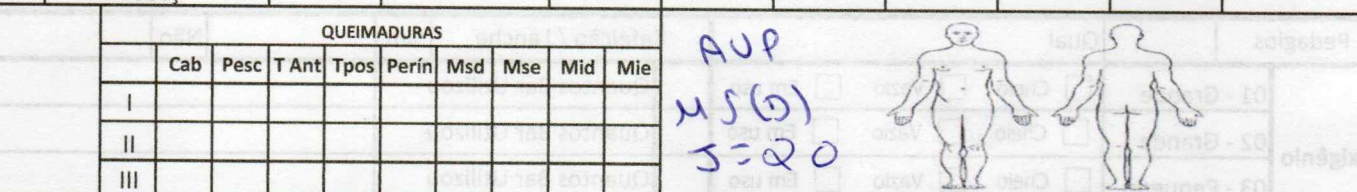 QUEIMADURAS
Cab Pesc T Ant Tpos Perín Msd Mse Mid Mie
I
II
III
AVP
MS(D)
J=20